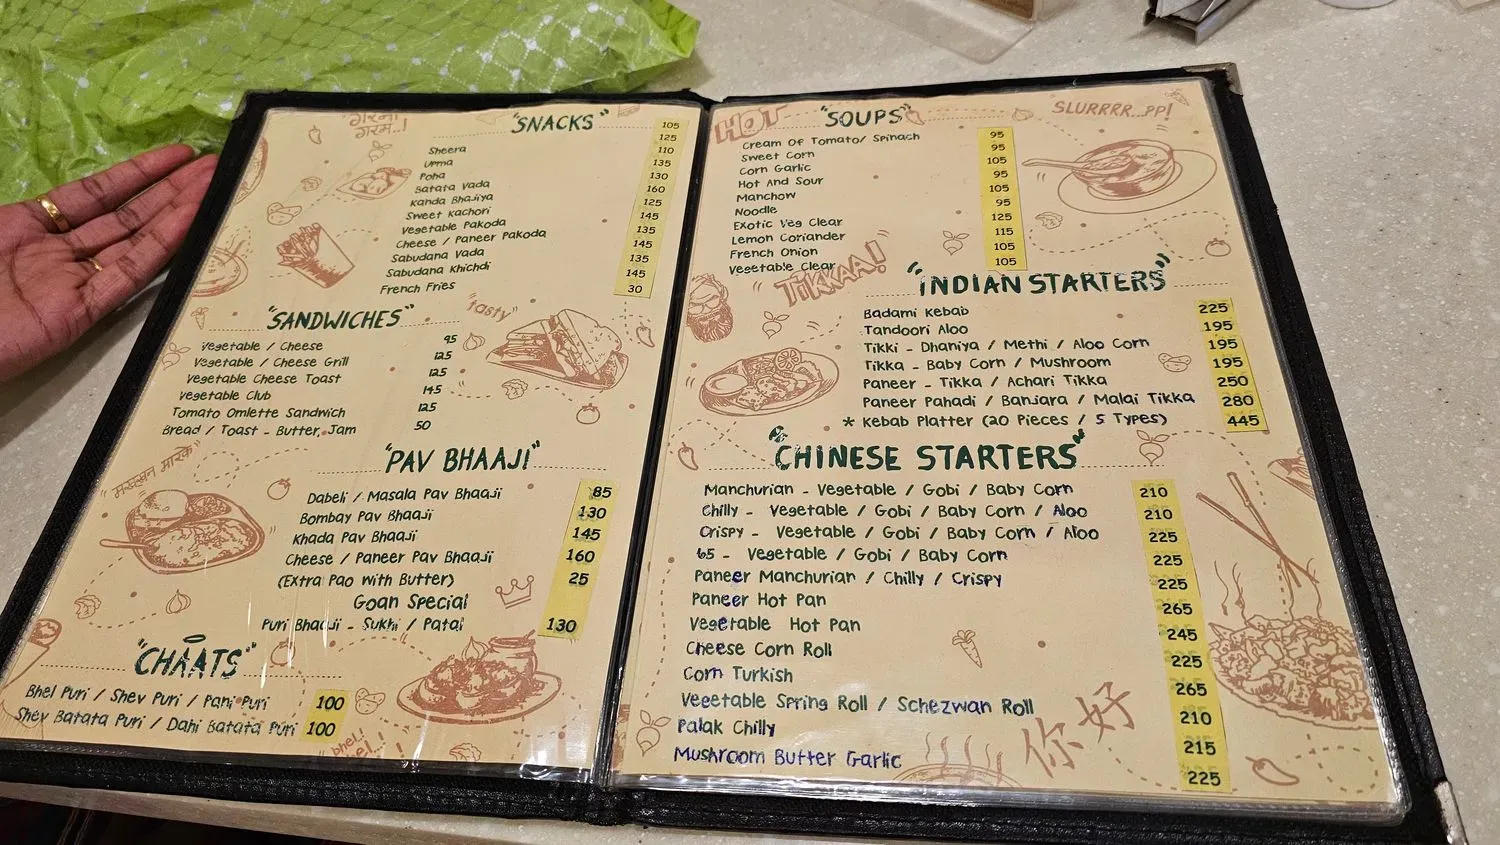 गरमा
गरम..!
"SNACKS"
Sheera
Upma
Poha
Batata Vada
Kanda Bhajiya
Sweet Kachori
Vegetable Pakoda
Cheese / Paneer Pakoda
Sabudana Vada
Sabudana Khichdi
French Fries
105
125
110
135
130
160
125
145
135
145
135
145
30
"SANDWICHES"
"tasty"
Vegetable / Cheese 95
Vegetable / Cheese Grill 125
Vegetable Cheese Toast 125
Vegetable Club 145
Tomato Omlette Sandwich 125
Bread / Toast - Butter, Jam 50
मख्खन मारके
"PAV BHAAJI"
Dabeli / Masala Pav Bhaaji 85
Bombay Pav Bhaaji 130
Khada Pav Bhaaji 145
Cheese / Paneer Pav Bhaaji 160
(Extra Pao with Butter) 25
Goan Special
Puri Bhaaji - Sukhi / Patal 130
"CHAATS"
Bhel Puri / Shev Puri / Pani Puri 100
Shev Batata Puri / Dahi Batata Puri 100
bhel!
HOT
"SOUPS"
SLURRRR...PP!
Cream Of Tomato/ Spinach 95
Sweet Corn 95
Corn Garlic 105
Hot And Sour 95
Manchow 105
Noodle 95
Exotic Veg Clear 125
Lemon Coriander 115
French Onion 105
Vegetable Clear 105
TIKKAA!
"INDIAN STARTERS"
Badami Kebab 225
Tandoori Aloo 195
Tikki - Dhaniya / Methi / Aloo Corn 195
Tikka - Baby Corn / Mushroom 195
Paneer - Tikka / Achari Tikka 250
Paneer Pahadi / Banjara / Malai Tikka 280
* Kebab Platter (20 Pieces / 5 Types) 445
"CHINESE STARTERS"
Manchurian - Vegetable / Gobi / Baby Corn 210
Chilly - Vegetable / Gobi / Baby Corn / Aloo 210
Crispy - Vegetable / Gobi / Baby Corn / Aloo 225
65 - Vegetable / Gobi / Baby Corn 225
Paneer Manchurian / Chilly / Crispy 225
Paneer Hot Pan 265
Vegetable Hot Pan 245
Cheese Corn Roll 225
Corn Turkish 265
Vegetable Spring Roll / Schezwan Roll 210
Palak Chilly 215
Mushroom Butter Garlic 225
你好